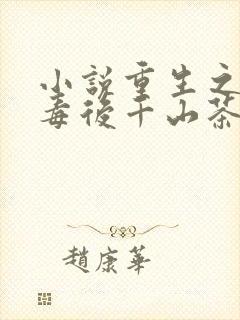 小說重生之
毒後千山茶
趙康華